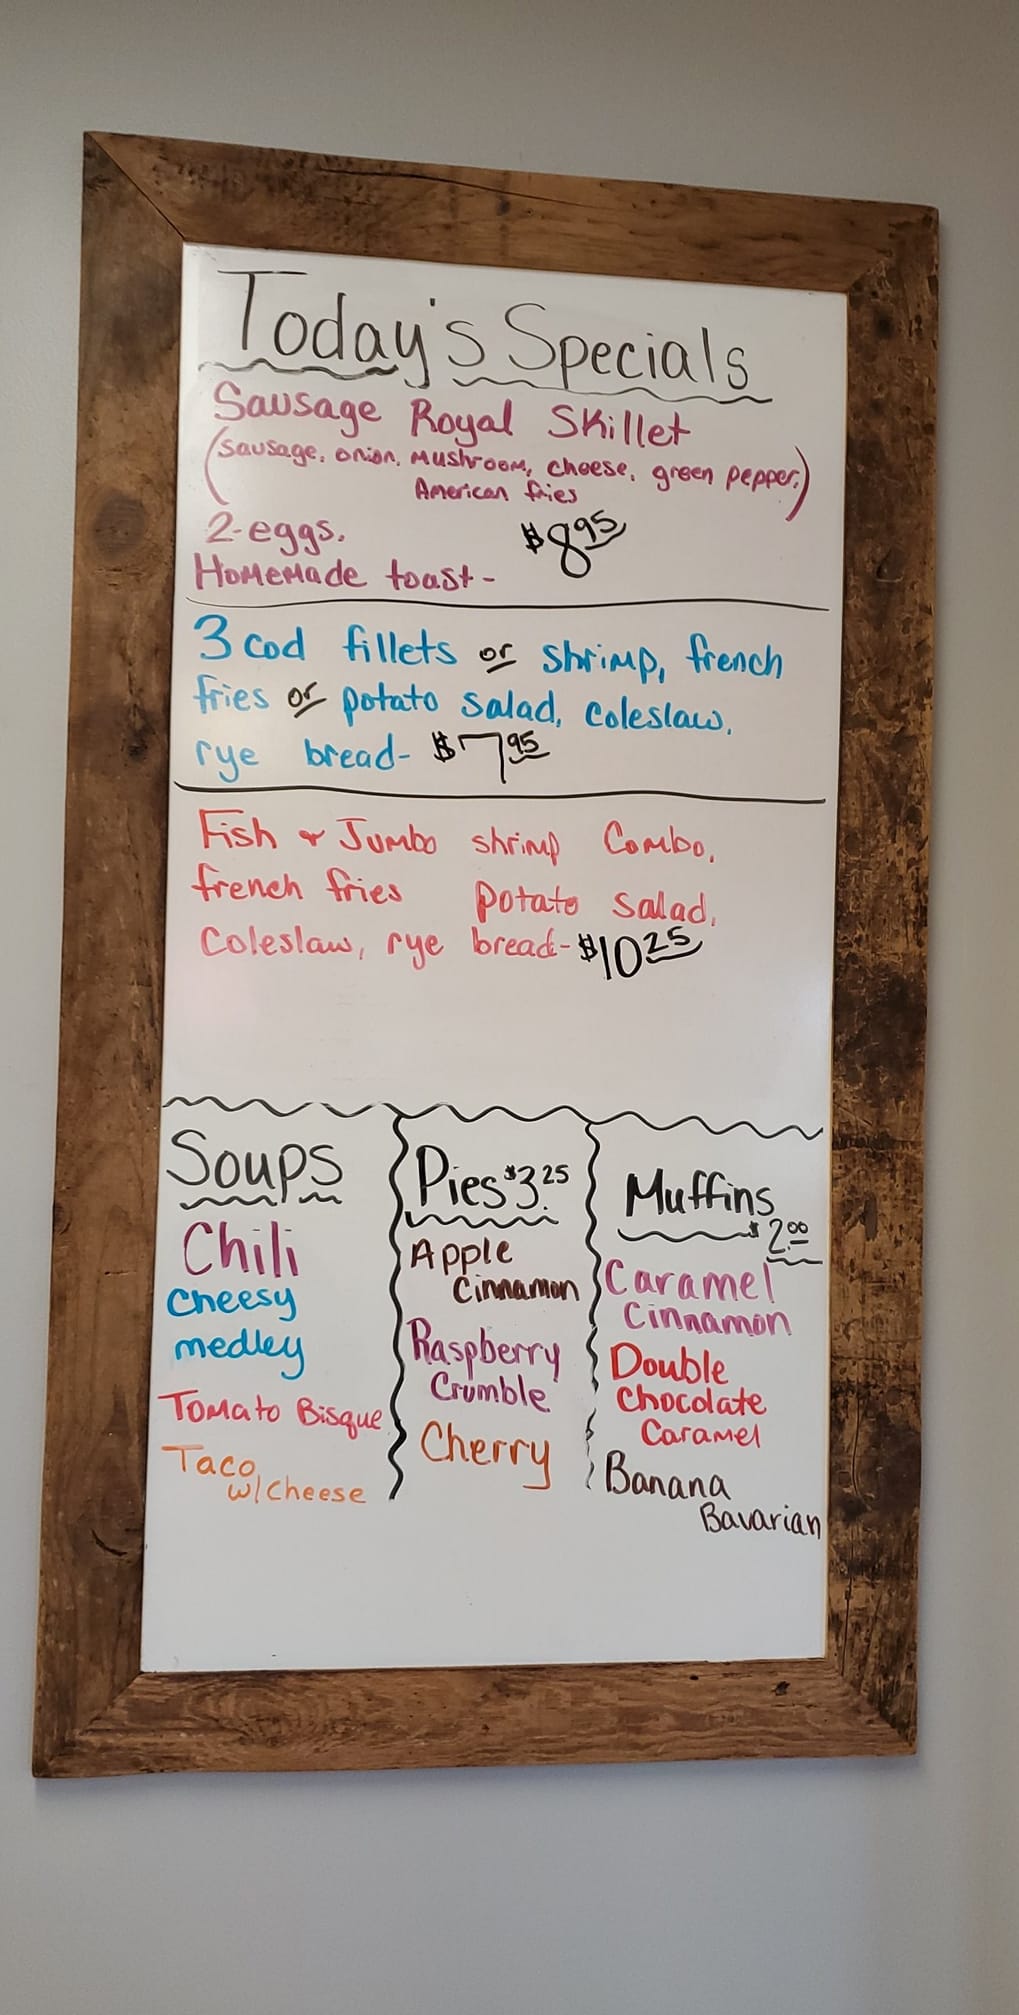 Today's Specials
Sausage Royal Skillet
(Sausage, onion, mushroom, cheese, green pepper,)
American fries
2-eggs. $8.95
Homemade toast-
3 cod fillets or shrimp, french
fries or potato salad, coleslaw,
rye bread- $7.95
Fish & Jumbo shrimp Combo,
french fries potato salad,
Coleslaw, rye bread- $10.25
Soups
Chili
Cheesy
medley
Tomato Bisque
Taco
w/cheese
Pies $3.25
Apple
Cinnamon
Raspberry
Crumble
Cherry
Muffins
$2.00
Caramel
Cinnamon
Double
Chocolate
Caramel
Banana
Bavarian